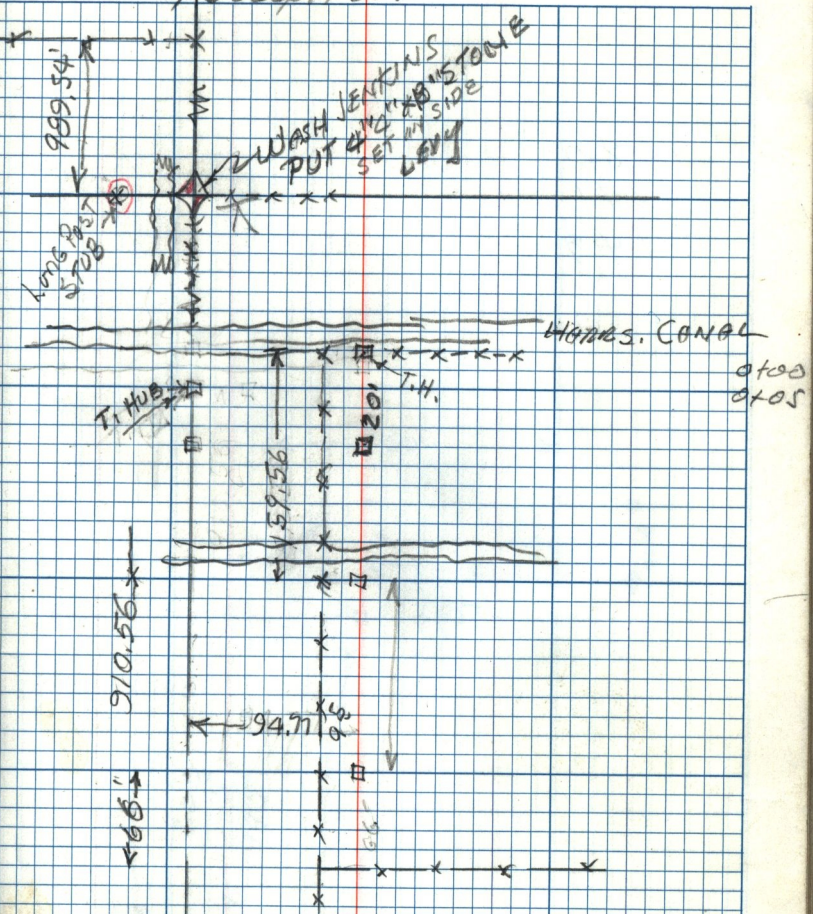 989.54'
WASH JENKINS
PUT 4"x4"x18" STONE
SET IN SIDE
LEVY
LONG POST
STUB
HARRS. CANAL
0+00
0+05
T. HUB
T.H.
20'
159.56
910.56
94.77
66'
66'